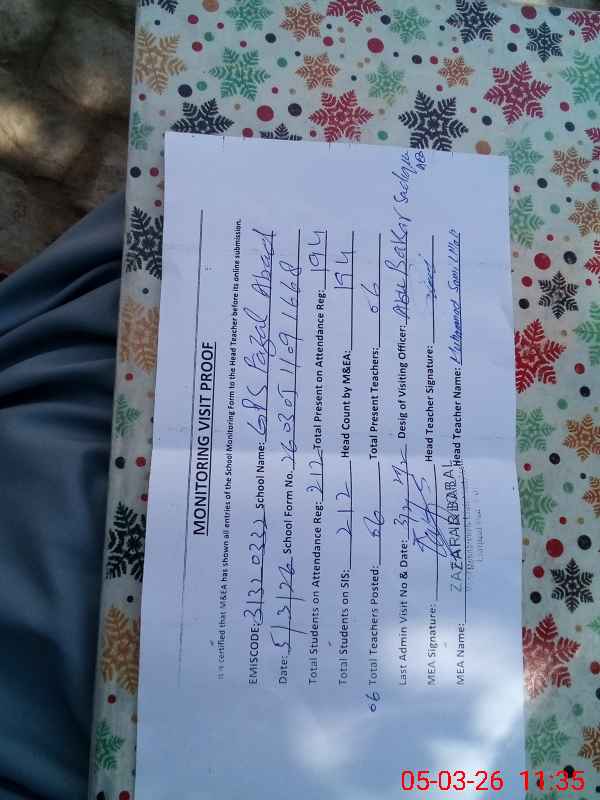 MONITORING VISIT PROOF
It is certified that M&EA has shown all entries of the School Monitoring Form to the Head Teacher before its online submission.
EMISCODE: 31320332 School Name: GPS Fazal Abad
Date: 5/3/26 School Form No. 2603051091668
Total Students on Attendance Reg: 212 Total Present on Attendance Reg: 194
Total Students on SIS: 212 Head Count by M&EA: 194
06 Total Teachers Posted: 06 Total Present Teachers: 06
Last Admin Visit No & Date: Desig of Visiting Officer: Abu Bakar
MEA Signature: Head Teacher Signature:
MEA Name: ZAFAR IQBAL Head Teacher Name: Muhammad
05-03-26 11:35